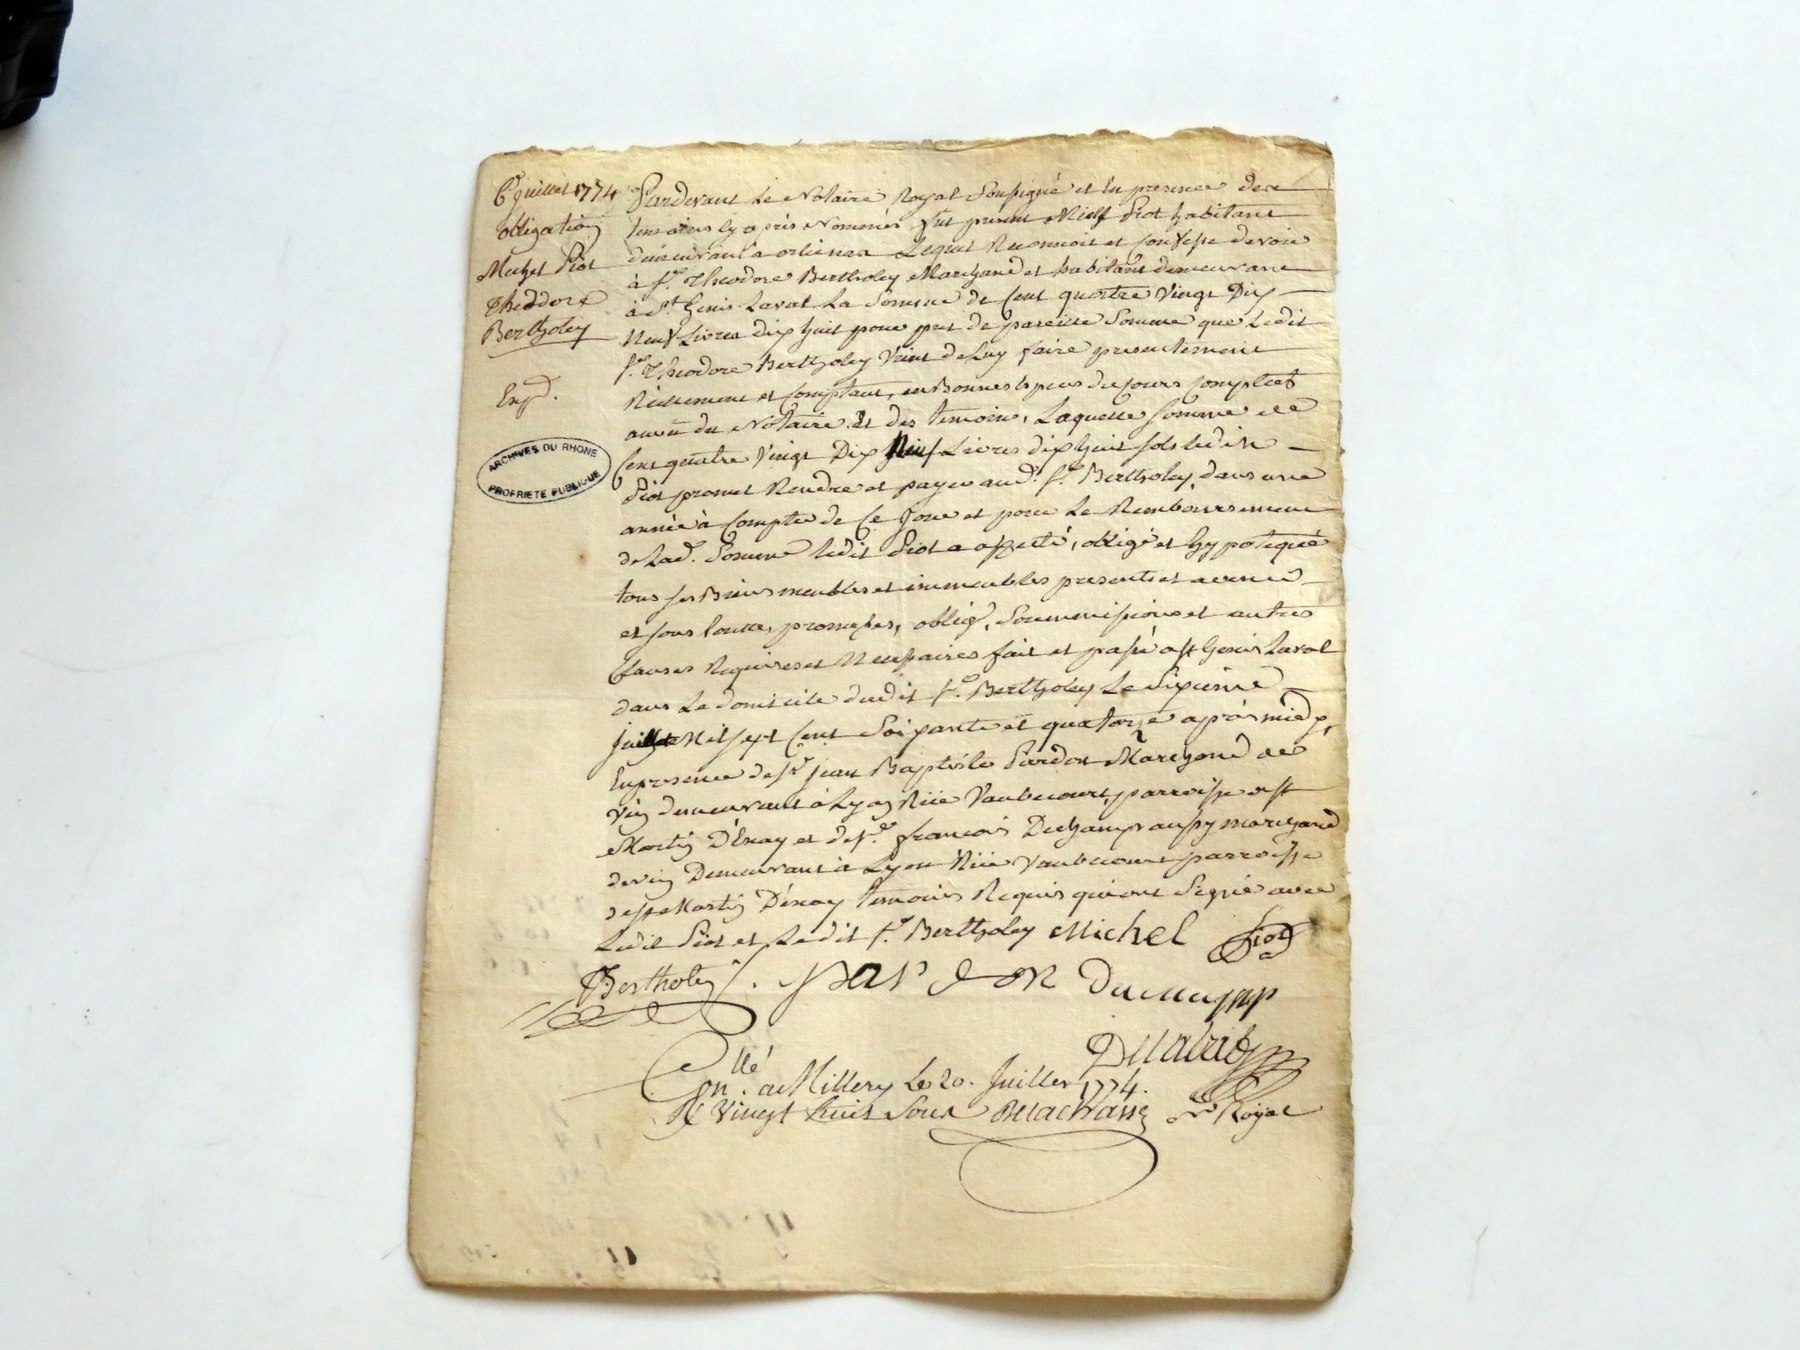 6 juillet 1774
obligation
Michel Piot
Théodore
Bertholey
Engd.
ARCHIVES DU RHONE
PROPRIETE PUBLIQUE
Pardevant Le Notaire Royal Soussigné et En presence des
temoins Cy après Nommés fut present Michel Piot habitant
demeurant a orlienas Lequel Reconnoit et Confesse devoir
à sr. Theodore Bertholey Marchand et habitant demeurant
à st Genis Laval La Somme de Cent quatre Vingt Dix
Neuf Livres dix huit pour pret de pareille Somme que Ledit
sr. Theodore Bertholey Vient de Luy faire presentement
Réellement et Comptant, en Bonnes Especes du Cours Comptées
au vû du Notaire Et des temoins, Laquelle Somme de
Cent quatre Vingt Dix Neuf Livres dix huit sols ledit
Piot promet Rendre et payer aud. sr. Bertholey, dans une
année à Compter de Ce Jour et pour Le Remboursement
de Lad. Somme ledit Piot a affecté, obligé et hypotequé
tous ses Biens meubles et immeubles presents et avenir
et sous toutes promesses, oblig., Soummissions et autres
Clauses Requises et Necessaires fait et passé a st Genis Laval
dans Le domicile dudit sr. Bertholey Le Sixieme
juillet Mil sept Cent Soixante et quatorze après midy,
En presence de sr. jean Baptiste Pardon Marchand de
Vin demeurant à Lyon Rüe Vaubecourt, parroisse st
Martin D'Enay et de sr. francois Duchamp aussy marchand
de vin Demeurant à Lyon Rüe Vaubecourt parroisse
de st Martin D'enay temoins Requis qui ont Signé avec
Ledit Piot et Ledit sr. Bertholey Michel Piot
Bertholey. pardon Duchamp
Cllé
Con. a Millery Le 20. Juillet 1774.
R Vingt huit Sous Delachassé
Nre Royal